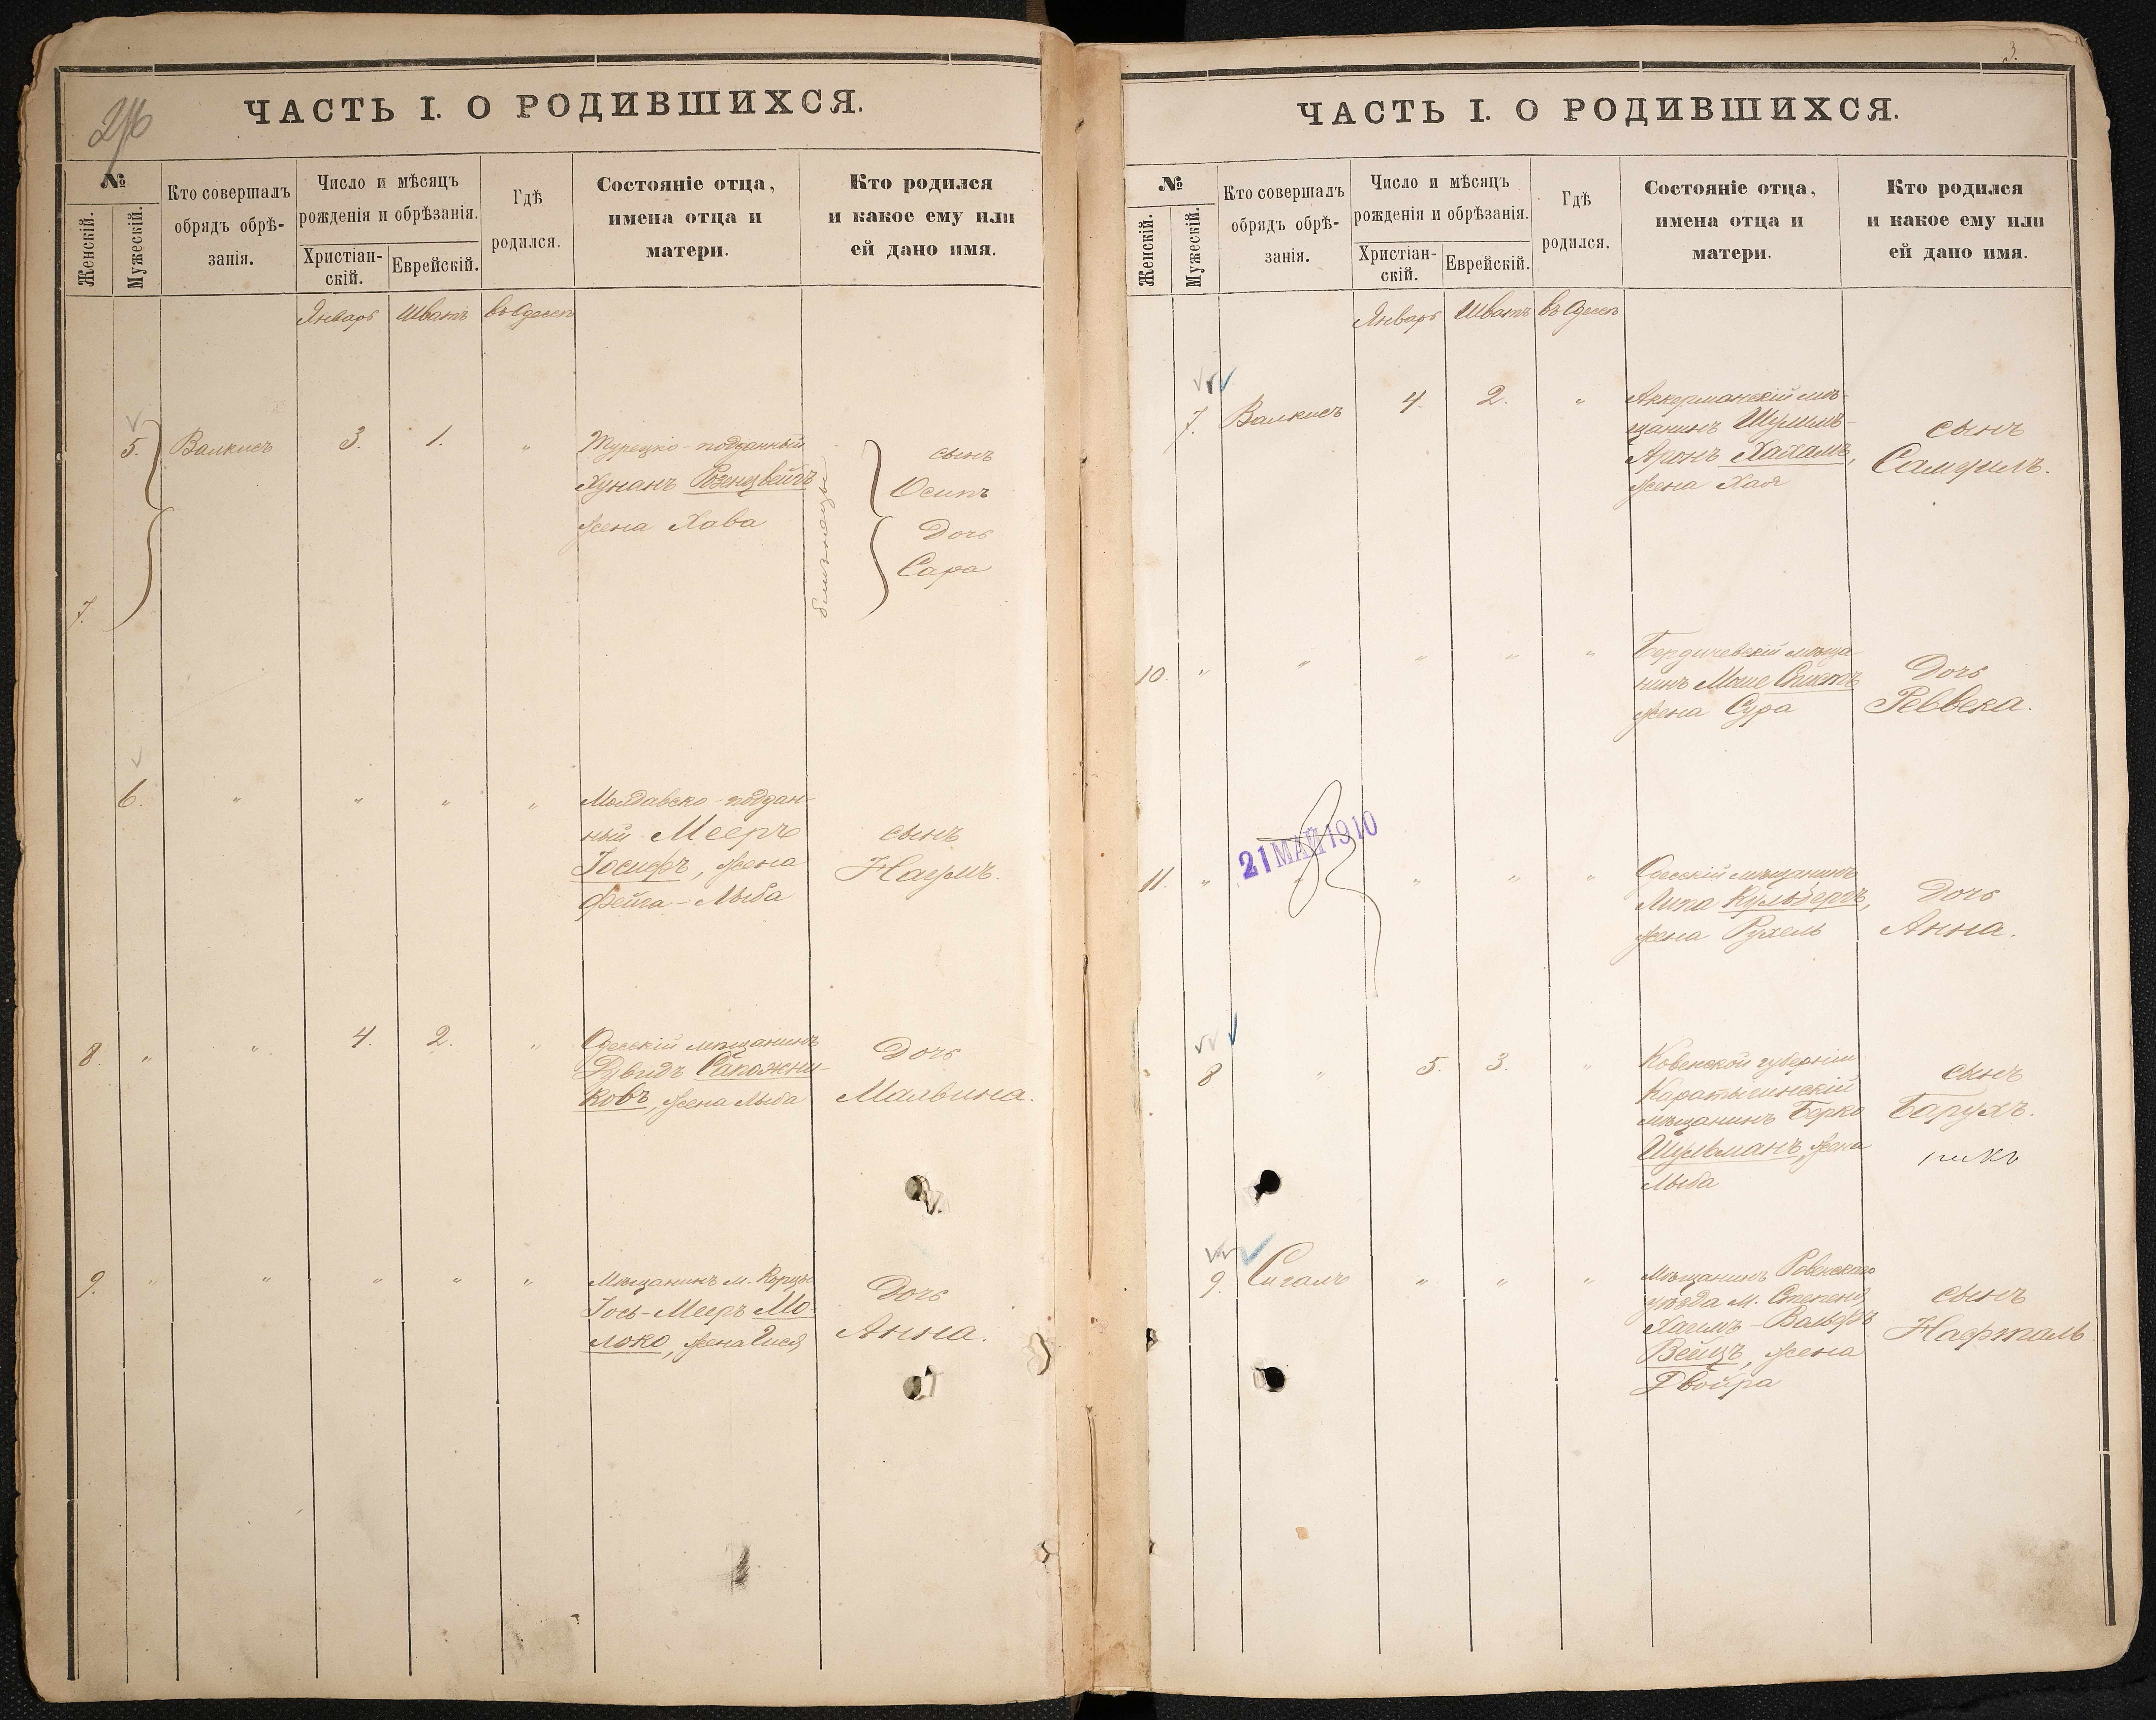 ЧАСТЬ I. О РОДИВШИХСЯ.
№
Женскій.
Мужескій.
Кто совершалъ
обрядъ обрѣ-
занія.
Число и мѣсяцъ
рожденія и обрѣзанія.
Христіан-
скій.
Еврейскій.
Гдѣ
родился.
Состояніе отца,
имена отца и
матери.
Кто родился
и какое ему или
ей дано имя.
Январь Шватъ въ Одессѣ
5. Валкисъ 3. 1. "
Турецко-подданный
Хунанъ Розенцвейгъ
жена Хава
близнецы
сынъ
Осипъ
Дочь
Сара
7.
6. " " " "
Молдавско-поддан-
ный Мееръ
Іосифъ, жена
Фейга-Лыба
сынъ
Наумъ.
8. " " 4. 2. "
Одесскій мѣщанинъ
Дувидъ Сапожни-
ковъ, жена Лыба
Дочь
Малвина.
9. " " " " "
Мѣщанинъ м. Корцы
Іось-Мееръ Мо-
локо, жена Гися
Дочь
Анна.
3.
ЧАСТЬ I. О РОДИВШИХСЯ.
№
Женскій.
Мужескій.
Кто совершалъ
обрядъ обрѣ-
занія.
Число и мѣсяцъ
рожденія и обрѣзанія.
Христіан-
скій.
Еврейскій.
Гдѣ
родился.
Состояніе отца,
имена отца и
матери.
Кто родился
и какое ему или
ей дано имя.
Январь Шватъ въ Одессѣ
7. Валкисъ 4. 2. "
Аккерманскій мѣ-
щанинъ Шулимъ-
Аронъ Хахамъ,
жена Хая
сынъ
Самуилъ.
10. " " " " "
Бердичевскій мѣща-
нинъ Моше
жена Сура
Дочь
Реввека.
21 МАЙ 1910
11. " " " " "
Одесскій мѣщанинъ
Липа Кульбергъ,
жена Рухель
Дочь
Анна.
8 " 5. 3. "
Ковенской губерніи
мѣщанинъ Берко
Шульманъ, жена
Лыба
сынъ
Барухъ.
9. Сигалъ " " "
Мѣщанинъ Ровенскаго
уѣзда м. Степеня
Хаимъ-Вольфъ
Вейцъ, жена
Двойра
сынъ
Нафталь